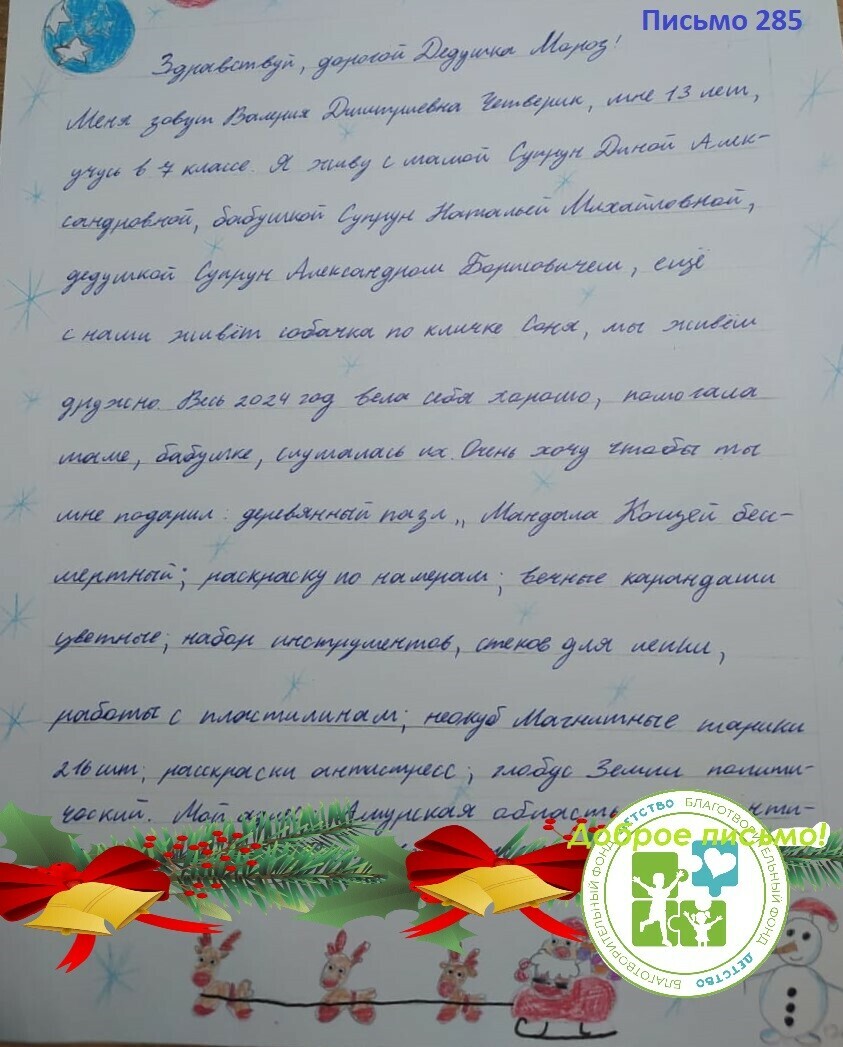 Письмо 285
Здравствуй, дорогой Дедушка Мороз!
Меня зовут Валерия Дмитриевна Четверик, мне 13 лет,
учусь в 7 классе. Я живу с мамой Супрун Диной Алек-
сандровной, бабушкой Супрун Натальей Михайловной,
дедушкой Супрун Александром Борисовичем, ещё
с нами живёт собачка по кличке Соня, мы живём
дружно. Весь 2024 год вела себя хорошо, помогала
маме, бабушке, слушалась их. Очень хочу чтобы ты
мне подарил: деревянный пазл „ Мандала Кощей бес-
мертный; раскраску по намерам; вечные карандаши
цветные; набор инструментов, стеков для лепки,
работы с пластилинам; неокуб Магнитные шарики
216 шт; расскраски антистресс; глобус Земли полити-
ческий. Мой Амурская область
Доброе письмо!
БЛАГОТВОРИТЕЛЬНЫЙ ФОНД ДЕТСТВО БЛАГОТВОРИТЕЛЬНЫЙ ФОНД ДЕТСТВО